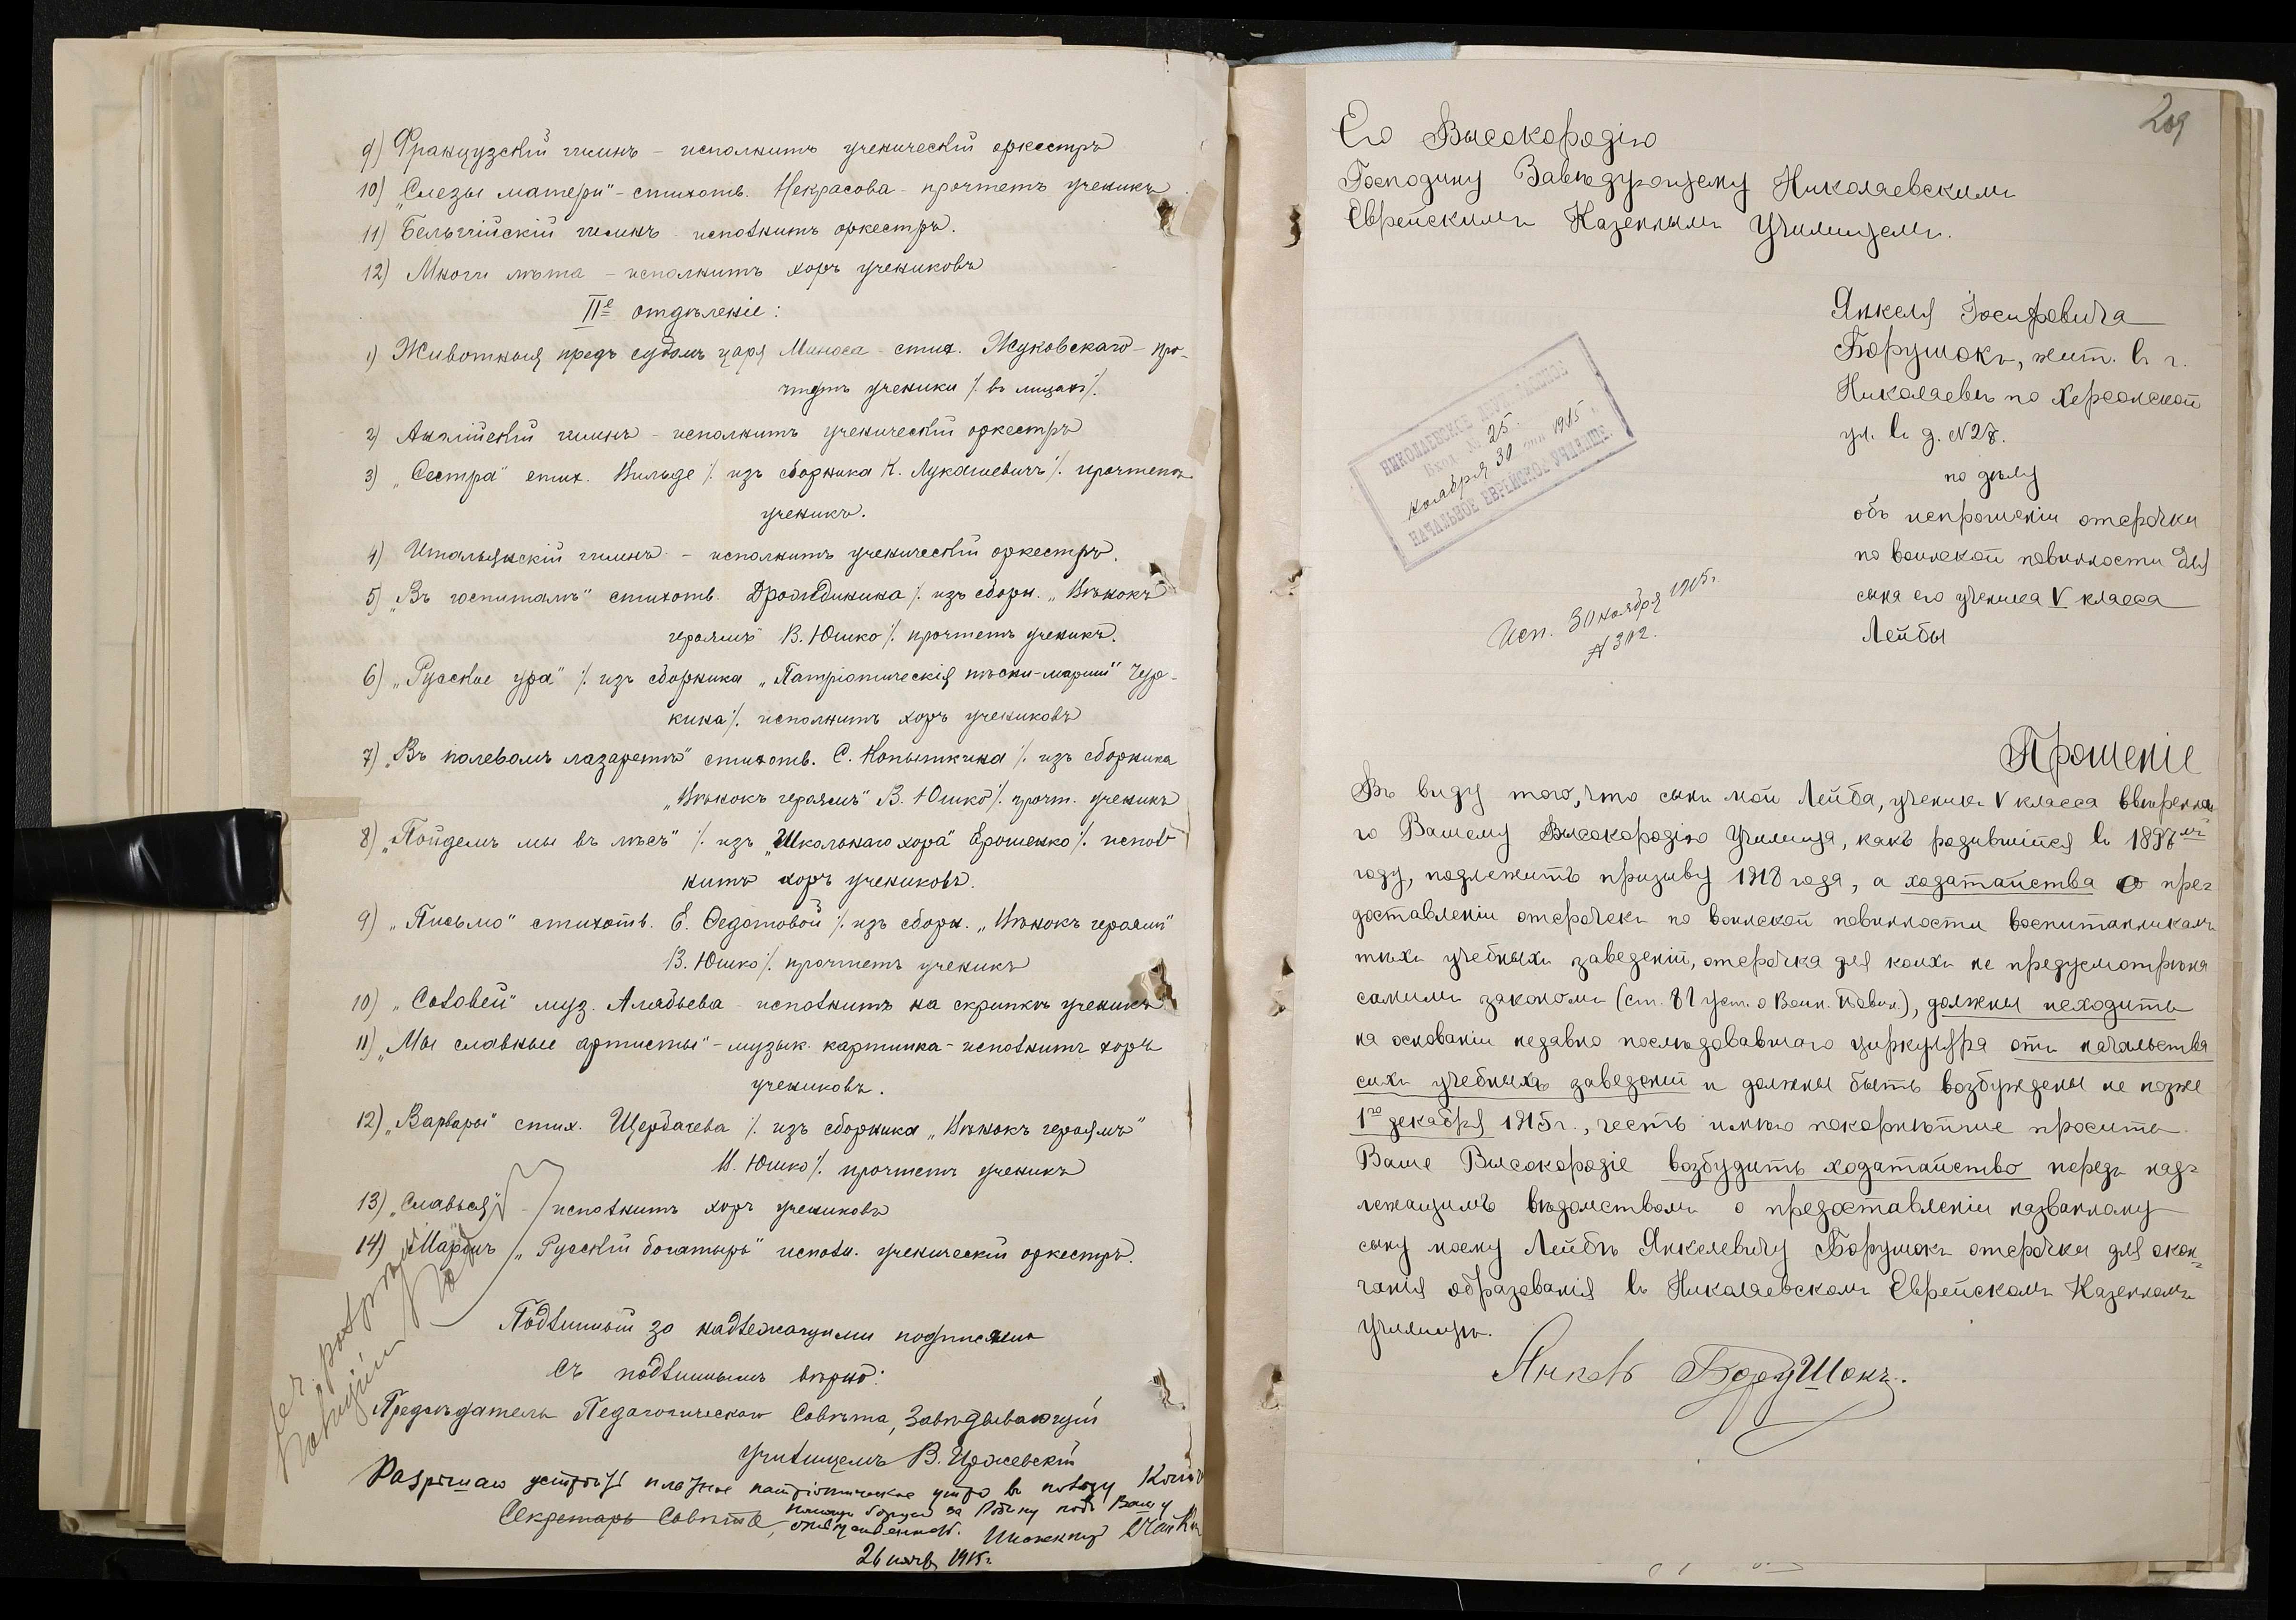 9) Французскій гимнъ - исполнитъ ученическій оркестръ
10) „Слезы матери" - стихотв. Некрасова - прочтетъ ученикъ
11) Бельгійскій гимнъ - исполнитъ оркестръ.
12) Многи лѣта - исполнитъ хоръ учениковъ
IIе отдѣленіе:
1) Животныя предъ судомъ царя Миноса - стих. Жуковскаго - про-
чтутъ ученики /. въ лицахъ /.
2) Англійскій гимнъ - исполнитъ ученическій оркестръ
3) „Сестра" стих. Вильде /. изъ сборника К. Лукашевичъ /. прочтетъ
ученикъ.
4) Итальянскій гимнъ - исполнитъ ученическій оркестръ.
5) „Въ госпиталѣ" стихотв. Дрождинина /. изъ сборн. „Вѣнокъ
героямъ" В. Юшко /. прочтетъ ученикъ.
6) „Русское ура" /. изъ сборника „Патріотическія пѣсни-марши" Чур-
кина /. исполнитъ хоръ учениковъ
7) „Въ полевомъ лазаретѣ" стихотв. С. Копыткина /. изъ сборника
„Вѣнокъ героямъ" В. Юшко /. прочт. ученикъ
8) „Пойдемъ мы въ лѣсъ" /. изъ „Школьнаго хора" Ерошенко /. испол-
нитъ хоръ учениковъ.
9) „Письмо" стихотв. Е. Федотовой /. изъ сборн. „Вѣнокъ героямъ"
В. Юшко /. прочтетъ ученикъ
10) „Соловей" муз. Алябьева - исполнитъ на скрипкѣ ученикъ
11) „Мы славные артисты" - музык. картинка - исполнитъ хоръ
учениковъ.
12) „Варвары" стих. Щербачева /. изъ сборника „Вѣнокъ героямъ"
В. Юшко /. прочтетъ ученикъ
13) „Славься" - исполнитъ хоръ учениковъ
14) Маршъ „Русскій богатырь" исполн. ученическій оркестръ.
Подлинный за надлежащими подписями
Съ подлиннымъ вѣрно:
Предсѣдатель Педагогическаго Совѣта, Завѣдывающій
училищемъ В.
Разрѣшаю устроить платное патріотическое утро въ пользу
Секретарь Совѣта,
за Родину подъ Вашу
Инспекторъ
26 нояб. 1915 г.
209
Его Высокородію
Господину Завѣдующему Николаевскимъ
Еврейскимъ Казеннымъ Училищемъ.
Янкеля Іосифовича
Борушокъ, жит. въ г.
Николаевѣ по Херсонской
ул. въ д. №28.
по дѣлу
объ испрошеніи отсрочки
по воинской повинности для
сына его ученика V класса
Лейбы
НИКОЛАЕВСКОЕ
Вход. № 25.
ноября 30 дня 1915 г.
НАЧАЛЬНОЕ ЕВРЕЙСКОЕ УЧИЛИЩЕ.
Исп. 30 ноября 1915 г.
№ 302.
Прошеніе
Въ виду того, что сынъ мой Лейба, ученикъ V класса ввѣренна-
го Вашему Высокородію Училища, какъ родившійся въ 1897мъ
году, подлежитъ призыву 1918 года, а ходатайства о пре-
доставленіи отсрочекъ по воинской повинности воспитанникамъ
тѣхъ учебныхъ заведеній, отсрочка для коихъ не предусмотрѣна
самимъ закономъ (ст. 81 уст. о Воин. Повин.), должны исходить
на основаніи недавно послѣдовавшаго циркуляра отъ начальства
сихъ учебныхъ заведеній и должны быть возбуждены не позже
1го декабря 1915 г., честь имѣю покорнѣйше просить
Ваше Высокородіе возбудить ходатайство передъ над-
лежащимъ вѣдомствомъ о предоставленіи названному
сыну моему Лейбѣ Янкелевичу Борушокъ отсрочки для окон-
чанія образованія въ Николаевскомъ Еврейскомъ Казенномъ
училищѣ.
Янкель Борушокъ.